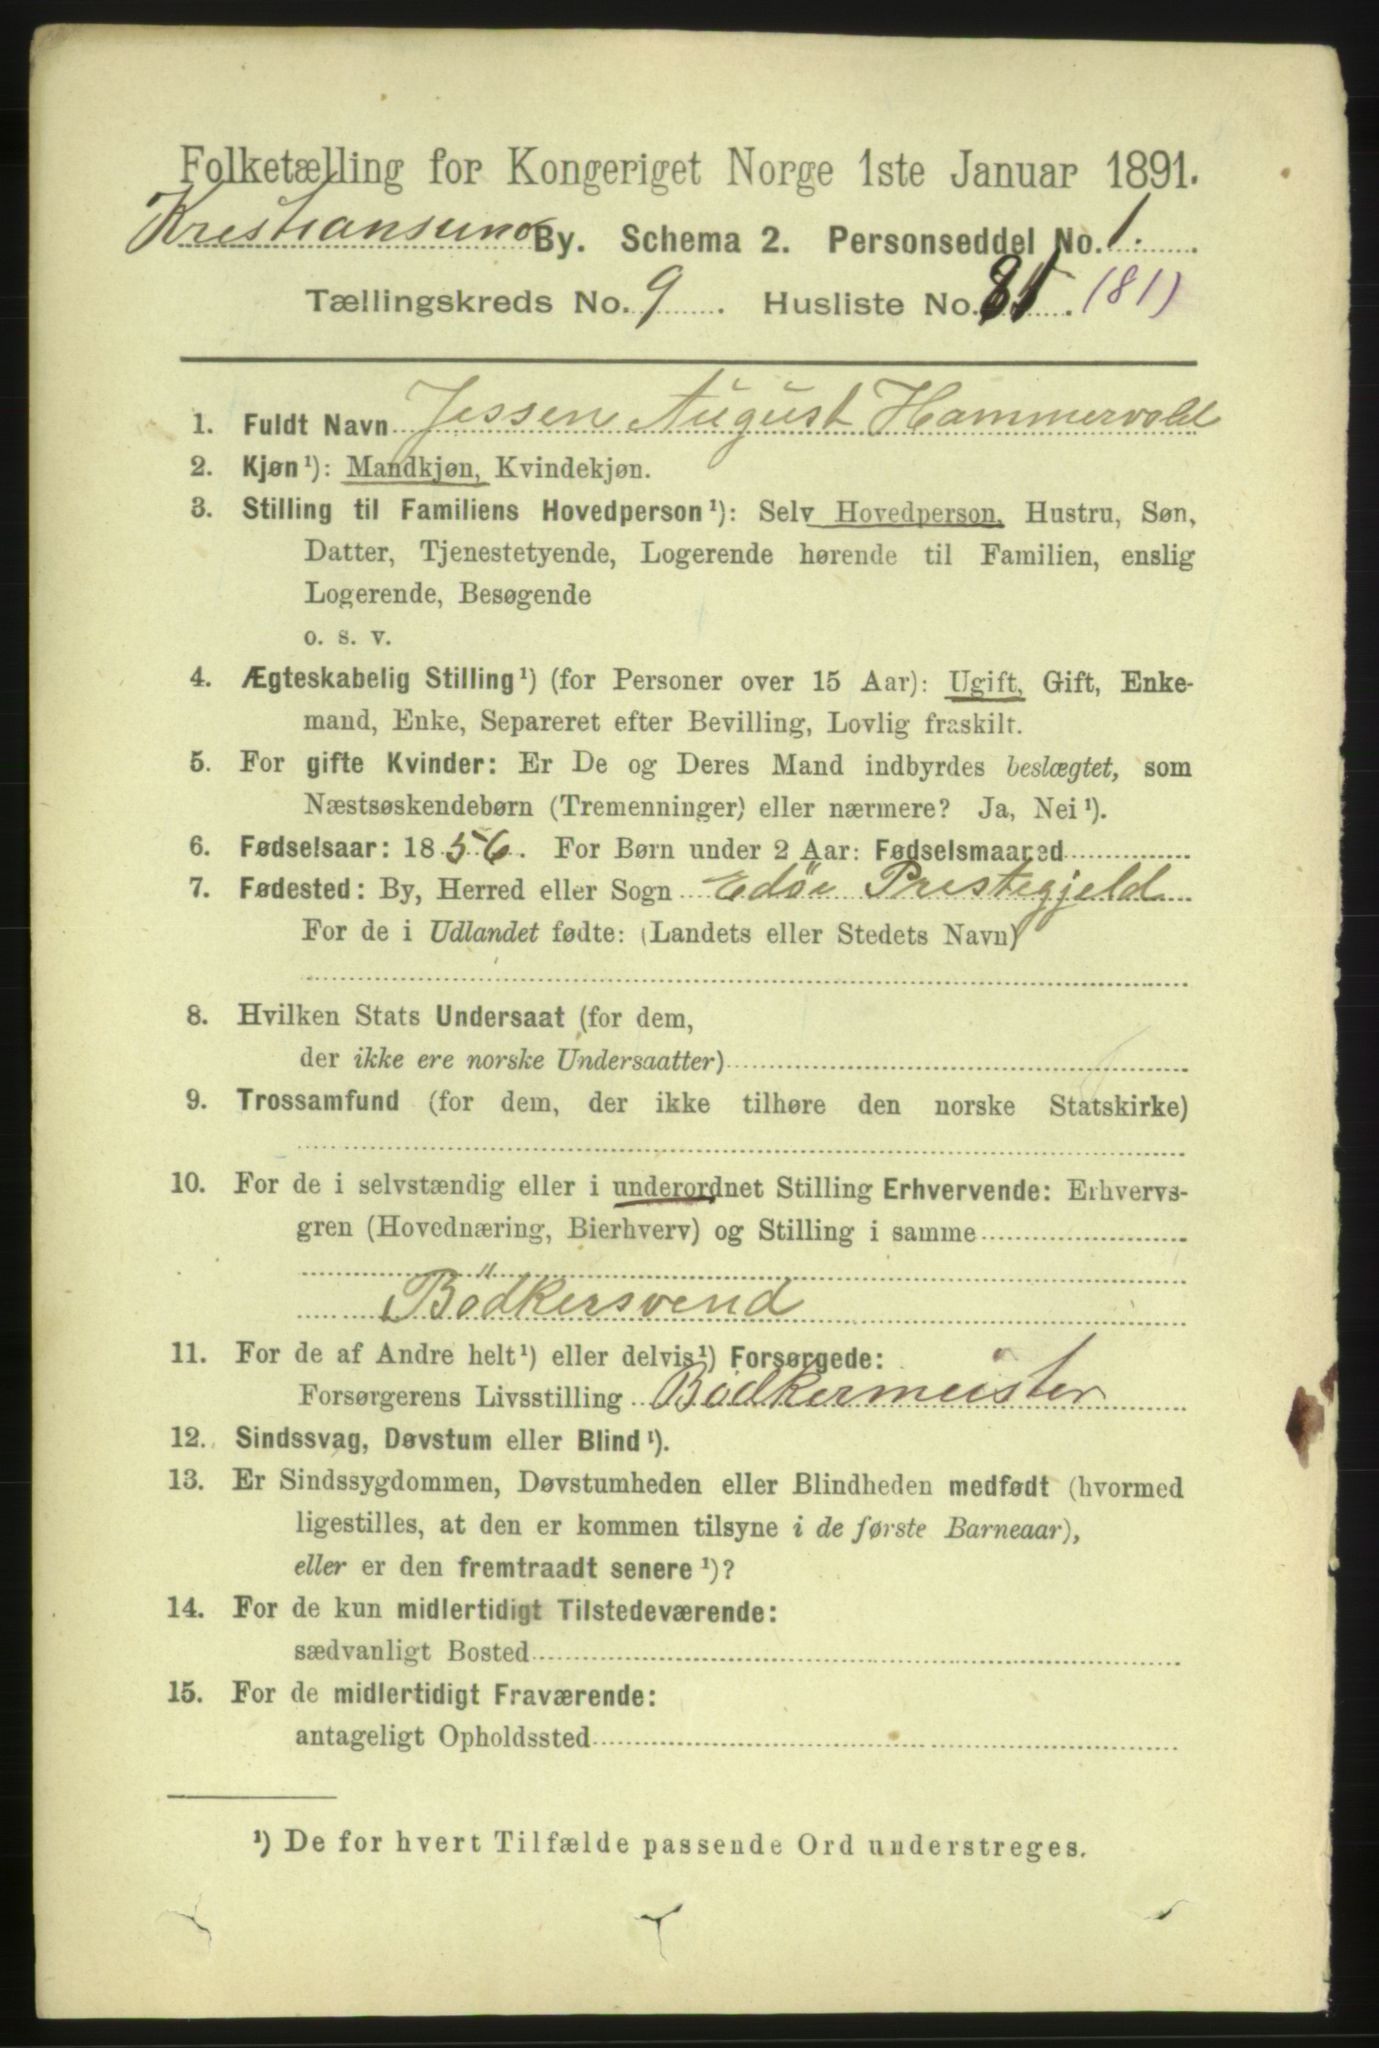 Folketælling for Kongeriget Norge 1ste Januar 1891.
Kristiansund By. Schema 2. Personseddel No. 1.
Tællingskreds No. 9. Husliste No. 81. (81)
1. Fuldt Navn Jessen August Hammervold
2. Kjøn¹): Mandkjøn, Kvindekjøn.
3. Stilling til Familiens Hovedperson¹): Selv Hovedperson, Hustru, Søn,
Datter, Tjenestetyende, Logerende hørende til Familien, enslig
Logerende, Besøgende
o. s. v.
4. Ægteskabelig Stilling¹) (for Personer over 15 Aar): Ugift, Gift, Enke-
mand, Enke, Separeret efter Bevilling, Lovlig fraskilt.
5. For gifte Kvinder: Er De og Deres Mand indbyrdes beslægtet, som
Næstsøskendebørn (Tremenninger) eller nærmere? Ja, Nei¹).
6. Fødselsaar: 1856. For Børn under 2 Aar: Fødselsmaaned
7. Fødested: By, Herred eller Sogn Edöe Prestegjeld
For de i Udlandet fødte: (Landets eller Stedets Navn)
8. Hvilken Stats Undersaat (for dem,
der ikke ere norske Undersaatter)
9. Trossamfund (for dem, der ikke tilhøre den norske Statskirke)
10. For de i selvstændig eller i underordnet Stilling Erhvervende: Erhvervs-
gren (Hovednæring, Bierhverv) og Stilling i samme
Bödkersvend
11. For de af Andre helt¹) eller delvis¹) Forsørgede:
Forsørgerens Livsstilling Bødkermeister
12. Sindssvag, Døvstum eller Blind¹).
13. Er Sindssygdommen, Døvstumheden eller Blindheden medfødt (hvormed
ligestilles, at den er kommen tilsyne i de første Barneaar),
eller er den fremtraadt senere¹)?
14. For de kun midlertidigt Tilstedeværende:
sædvanligt Bosted
15. For de midlertidigt Fraværende:
antageligt Opholdssted
¹) De for hvert Tilfælde passende Ord understreges.